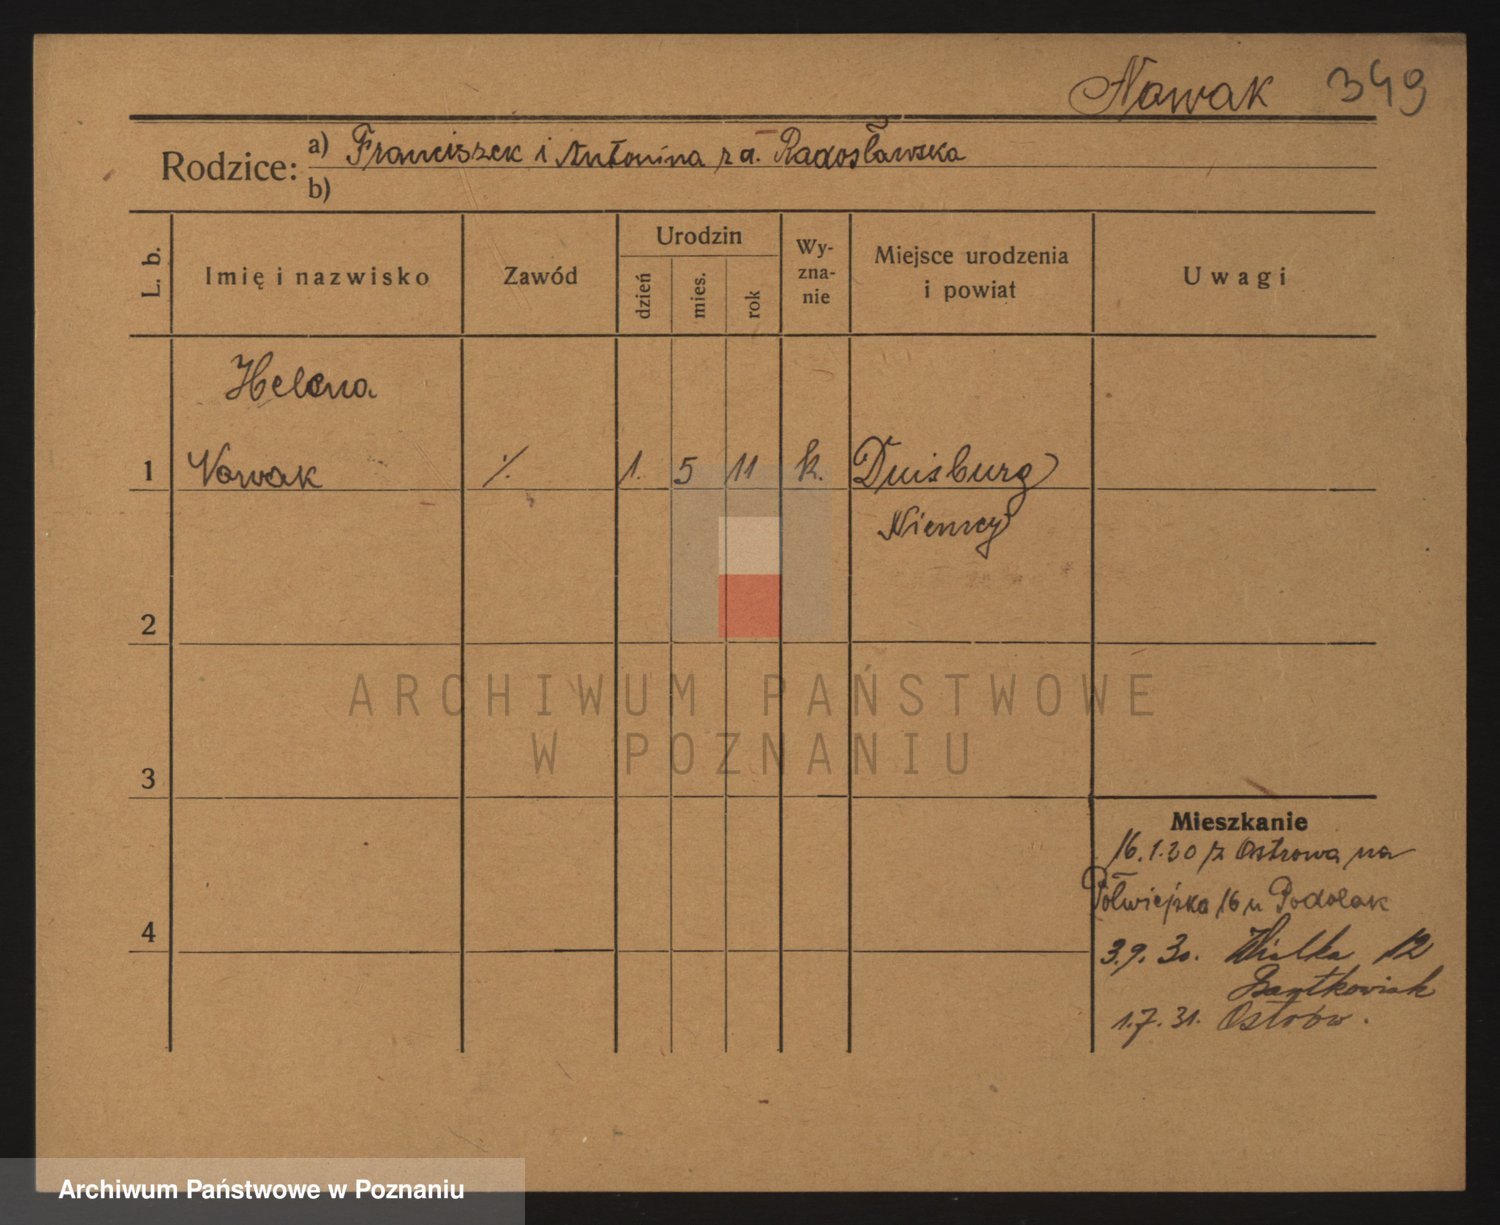 Nowak 349
Rodzice: a) Franciszek i Antonina z d. Radosławska
b)
L. b.
Imię i nazwisko
Zawód
Urodzin
dzień
mies.
rok
Wy-
zna-
nie
Miejsce urodzenia
i powiat
Uwagi
Helena
1 Nowak ·/. 1. 5 11 k. Duisburg
Niemcy
2
3
4
Mieszkanie
16.1.30 z Ostrowa na
Półwiejska 16 u Podolak
3.9.30. Wielka 12
Bartkowiak
1.7.31. Ostrów.
ARCHIWUM PAŃSTWOWE
W POZNANIU
Archiwum Państwowe w Poznaniu